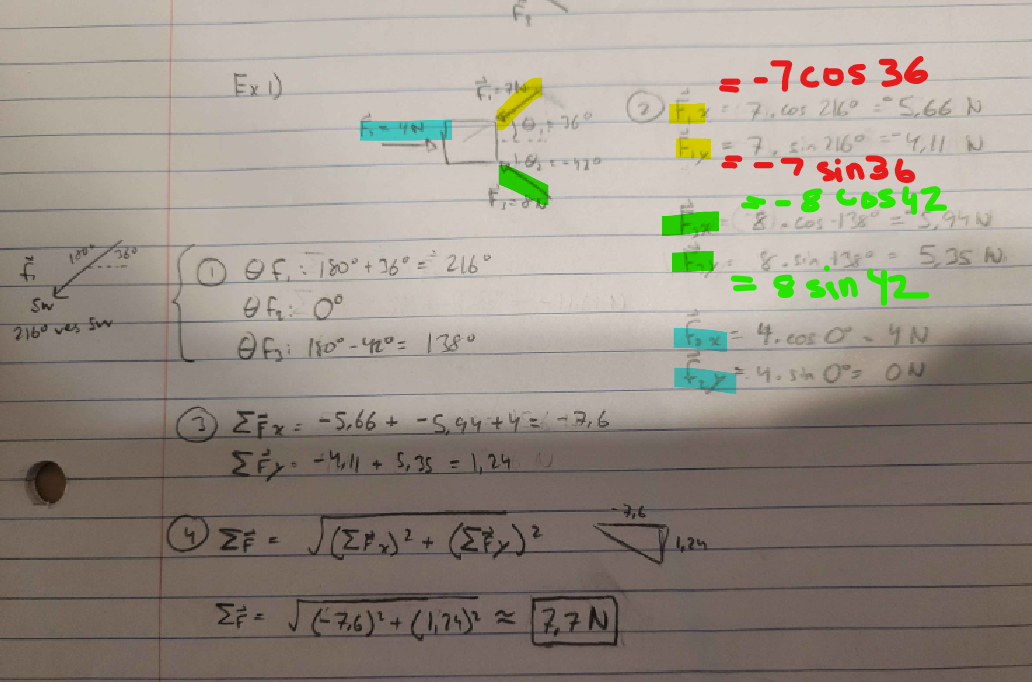 F₁
Ex 1)
F⃗₁ = 7N
θ₁ = 36°
F⃗₂ = 4N
θ₃ = -42°
F⃗₃ = 8N
② = -7 cos 36
F⃗₁x = 7. cos 216° = -5,66 N
F⃗₁y = 7. sin 216° = -4,11 N
= -7 sin 36
= -8 cos 42
F⃗₃x = 8. cos -138° = -5,94 N
F⃗₃y = 8. sin 138° = 5,35 N
= 8 sin 42
F⃗₂x = 4. cos 0° = 4 N
F⃗₂y = 4. sin 0° = 0 N
F⃗₁ 180° 36°
SW
216° vers SW
① θ F₁: 180° + 36° = 216°
θ F₂: 0°
θ F₃: 180° - 42° = 138°
③ ΣF⃗x = -5,66 + -5,94 + 4 = -7,6
ΣF⃗y = -4,11 + 5,35 = 1,24 N
④ ΣF⃗ = √(ΣF⃗x)² + (ΣF⃗y)²
-7,6
1,24
ΣF⃗ = √(-7,6)² + (1,24)² ≈ 7,7 N